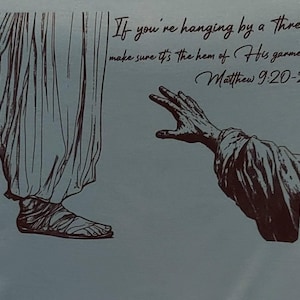 If you're hanging by a thre
make sure it's the hem of His garme
Matthew 9:20-2